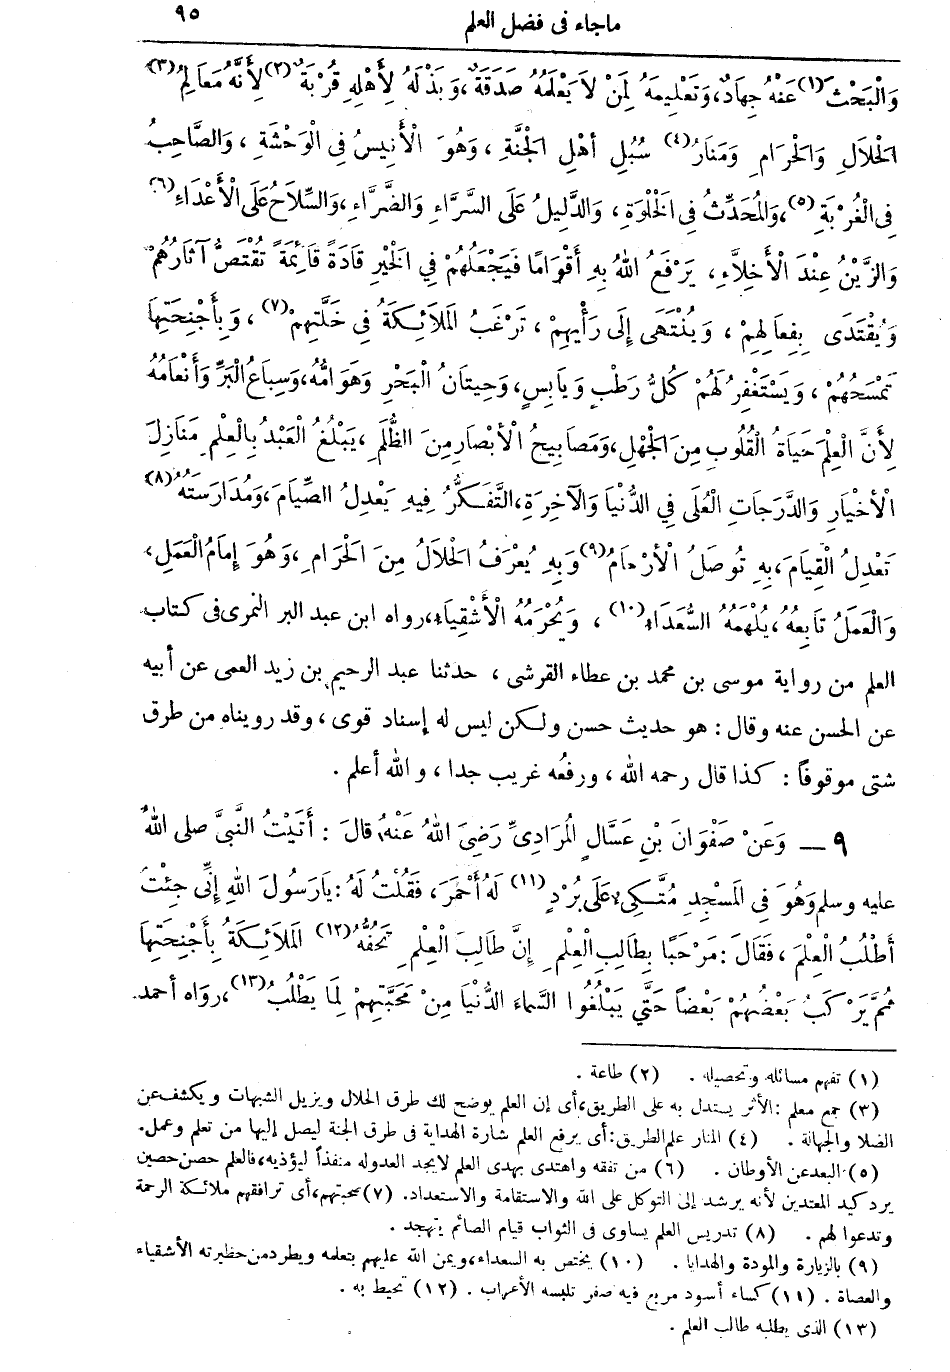 ماجاء فى فضل العلم ٩٥
وَالْبَحْثَ (١) عَنْهُ جِهَادٌ، وَتَعْلِيمَهُ لِمَنْ لاَ يَعْلَمُهُ صَدَقَةٌ، وَبَذْلَهُ لِأَهْلِهِ قُرْبَةٌ (٢) لِأَنَّهُ مَعَالِمُ (٣)
الْحَلَالِ وَالْحَرَامِ وَمَنَارُ (٤) سُبُلِ أَهْلِ الْجَنَّةِ، وَهُوَ الْأَنِيسُ فِى الْوَحْشَةِ، وَالصَّاحِبُ
فِى الْغُرْبَةِ (٥)، وَالْمُحَدِّثُ فِى الْخَلْوَةِ، وَالدَّلِيلُ عَلَى السَّرَّاءِ وَالضَّرَّاءِ، وَالسِّلَاحُ عَلَى الْأَعْدَاءِ (٦)
وَالزَّيْنُ عِنْدَ الْأَخِلاَّءِ، يَرْفَعُ اللهُ بِهِ أَقْوَامًا فَيَجْعَلُهُمْ فِي الْخَيْرِ قَادَةً قَائِمَةً تُقْتَصُّ آثَارُهُمْ
وَيُقْتَدَى بِفِعَالِهِمْ، وَيُنْتَهَى إِلَى رَأْيِهِمْ، تَرْغَبُ الْمَلَائِكَةُ فِى خَلَّتِهِمْ (٧)، وَبِأَجْنِحَتِهَا
تَمْسَحُهُمْ، وَيَسْتَغْفِرُ لَهُمْ كُلُّ رَطْبٍ وَيَابِسٍ، وَحِيتَانُ الْبَحْرِ وَهَوَامُّهُ، وَسِبَاعُ الْبَرِّ وَأَنْعَامُهُ
لِأَنَّ الْعِلْمَ حَيَاةُ الْقُلُوبِ مِنَ الْجَهْلِ، وَمَصَابِيحُ الْأَبْصَارِ مِنَ الظُّلَمِ، يَبْلُغُ الْعَبْدُ بِالْعِلْمِ مَنَازِلَ
الْأَخْيَارِ وَالدَّرَجَاتِ الْعُلَى فِي الدُّنْيَا وَالْآخِرَةِ، التَّفَكُّرُ فِيهِ يَعْدِلُ الصِّيَامَ، وَمُدَارَسَتُهُ (٨)
تَعْدِلُ الْقِيَامَ، بِهِ تُوصَلُ الْأَرْحَامُ (٩) وَبِهِ يُعْرَفُ الْحَلَالُ مِنَ الْحَرَامِ، وَهُوَ إِمَامُ الْعَمَلِ،
وَالْعَمَلُ تَابِعُهُ، يُلْهَمُهُ السُّعَدَاءُ (١٠)، وَيُحْرَمُهُ الْأَشْقِيَاءُ، رواه ابن عبد البر النمرى فى كتاب
العلم من رواية موسى بن محمد بن عطاء القرشى، حدثنا عبد الرحيم بن زيد العمى عن أبيه
عن الحسن عنه وقال: هو حديث حسن ولكن ليس له إسناد قوى، وقد رويناه من طرق
شتى موقوفاً: كذا قال رحمه الله، ورفعُه غريب جدا، والله أعلم.
٩ — وَعَنْ صَفْوَانَ بْنِ عَسَّالٍ الْمُرَادِىِّ رَضِىَ اللهُ عَنْهُ قالَ: أَتَيْتُ النَّبِىَّ صلى اللهُ
عليه وسلم وَهُوَ فِى الْمَسْجِدِ مُتَّكِىءٌ عَلَى بُرْدٍ (١١) لَهُ أَحْمَرَ، فَقُلْتُ لَهُ: يَارَسُولَ اللهِ إِنِّى جِئْتُ
أَطْلُبُ الْعِلْمَ، فَقَالَ: مَرْحَبًا بِطَالِبِ الْعِلْمِ إِنَّ طَالِبَ الْعِلْمِ تَحُفُّهُ (١٢) الْمَلَائِكَةُ بِأَجْنِحَتِهَا
ثُمَّ يَرْكَبُ بَعْضُهُمْ بَعْضاً حَتَّي يَبْلُغُوا السَّمَاءَ الدُّنْيَا مِنْ مَحَبَّتِهِمْ لِمَا يَطْلُبُ (١٣)، رواه أحمد
(١) تفهم مسائله وتحصيله. (٢) طاعة.
(٣) جمع معلم: الأثر يستدل به على الطريق، أى إن العلم يوضح لك طرق الحلال ويزيل الشبهات ويكشف عن
الضلا والجهالة. (٤) المنار علم الطريق: أى يرفع العلم شارة الهداية فى طرق الجنة ليصل إليها من تعلم وعمل.
(٥) البعد عن الأوطان. (٦) من تفقه واهتدى بهدى العلم لايجد العدوله منفذاً ليؤذيه، فالعلم حصن حصين
يرد كيد المعتدين لأنه يرشد إلى التوكل على الله والاستقامة والاستعداد. (٧) صحبتهم، أى ترافقهم ملائكة الرحمة
وتدعوا لهم. (٨) تدريس العلم يساوى فى الثواب قيام الصائم يتهجد.
(٩) بالزيارة والمودة والهدايا. (١٠) يختص به السعداء، ويمن الله عليهم بتعلمه ويطرد من حظيرته الأشقياء
والعصاة. (١١) كساء أسود مربع فيه صفر تلبسه الأعراب. (١٢) تحيط به.
(١٣) الذى يطلبه طالب العلم.